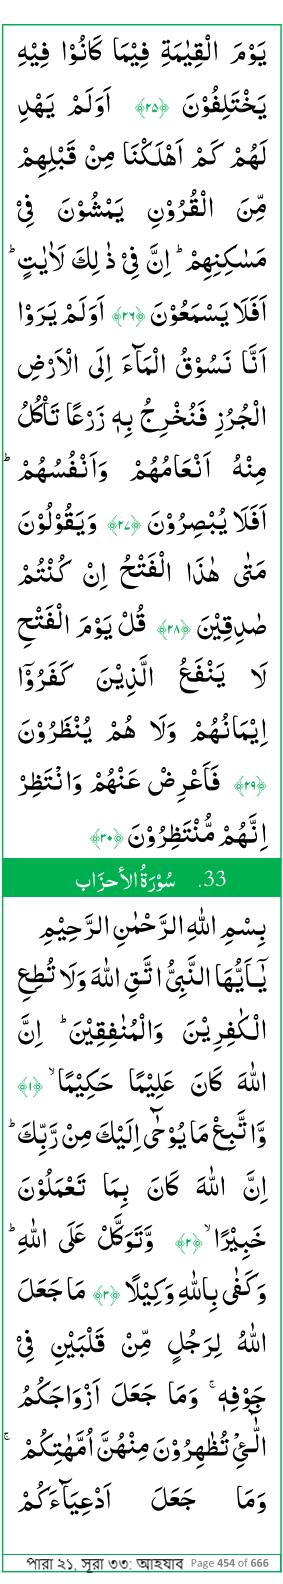 يَوْمَ الْقِيٰمَةِ فِيْمَا كَانُوْا فِيْهِ
يَخْتَلِفُوْنَ ﴿۲۵﴾ اَوَلَمْ يَهْدِ
لَهُمْ كَمْ اَهْلَكْنَا مِنْ قَبْلِهِمْ
مِّنَ الْقُرُوْنِ يَمْشُوْنَ فِيْ
مَسٰكِنِهِمْ ؕ اِنَّ فِيْ ذٰلِكَ لَاٰيٰتٍ ؕ
اَفَلَا يَسْمَعُوْنَ ﴿۲۶﴾ اَوَلَمْ يَرَوْا
اَنَّا نَسُوْقُ الْمَآءَ اِلَى الْاَرْضِ
الْجُرُزِ فَنُخْرِجُ بِهٖ زَرْعًا تَاْكُلُ
مِنْهُ اَنْعَامُهُمْ وَاَنْفُسُهُمْ ؕ
اَفَلَا يُبْصِرُوْنَ ﴿۲۷﴾ وَيَقُوْلُوْنَ
مَتٰى هٰذَا الْفَتْحُ اِنْ كُنْتُمْ
صٰدِقِيْنَ ﴿۲۸﴾ قُلْ يَوْمَ الْفَتْحِ
لَا يَنْفَعُ الَّذِيْنَ كَفَرُوْٓا
اِيْمَانُهُمْ وَلَا هُمْ يُنْظَرُوْنَ
﴿۲۹﴾ فَاَعْرِضْ عَنْهُمْ وَانْتَظِرْ
اِنَّهُمْ مُّنْتَظِرُوْنَ ﴿۳۰﴾
33. سُوْرَةُ الأحزَاب
بِسْمِ اللهِ الرَّحْمٰنِ الرَّحِيْمِ
يٰٓـاَيُّهَا النَّبِىُّ اتَّقِ اللهَ وَلَا تُطِعِ
الْكٰفِرِيْنَ وَالْمُنٰفِقِيْنَ ؕ اِنَّ
اللهَ كَانَ عَلِيْمًا حَكِيْمًا ۙ ﴿۱﴾
وَّاتَّبِعْ مَا يُوْحٰٓى اِلَيْكَ مِنْ رَّبِّكَ ؕ
اِنَّ اللهَ كَانَ بِمَا تَعْمَلُوْنَ
خَبِيْرًا ۙ ﴿۲﴾ وَّتَوَكَّلْ عَلَى اللهِ ؕ
وَكَفٰى بِاللهِ وَكِيْلًا ﴿۳﴾ مَا جَعَلَ
اللهُ لِرَجُلٍ مِّنْ قَلْبَيْنِ فِيْ
جَوْفِهٖ ۚ وَمَا جَعَلَ اَزْوَاجَكُمُ
الّٰٓـئِْ تُظٰهِرُوْنَ مِنْهُنَّ اُمَّهٰتِكُمْ ۚ
وَمَا جَعَلَ اَدْعِيَآءَكُمْ
পারা ২১, সূরা ৩৩: আহযাব Page 454 of 666